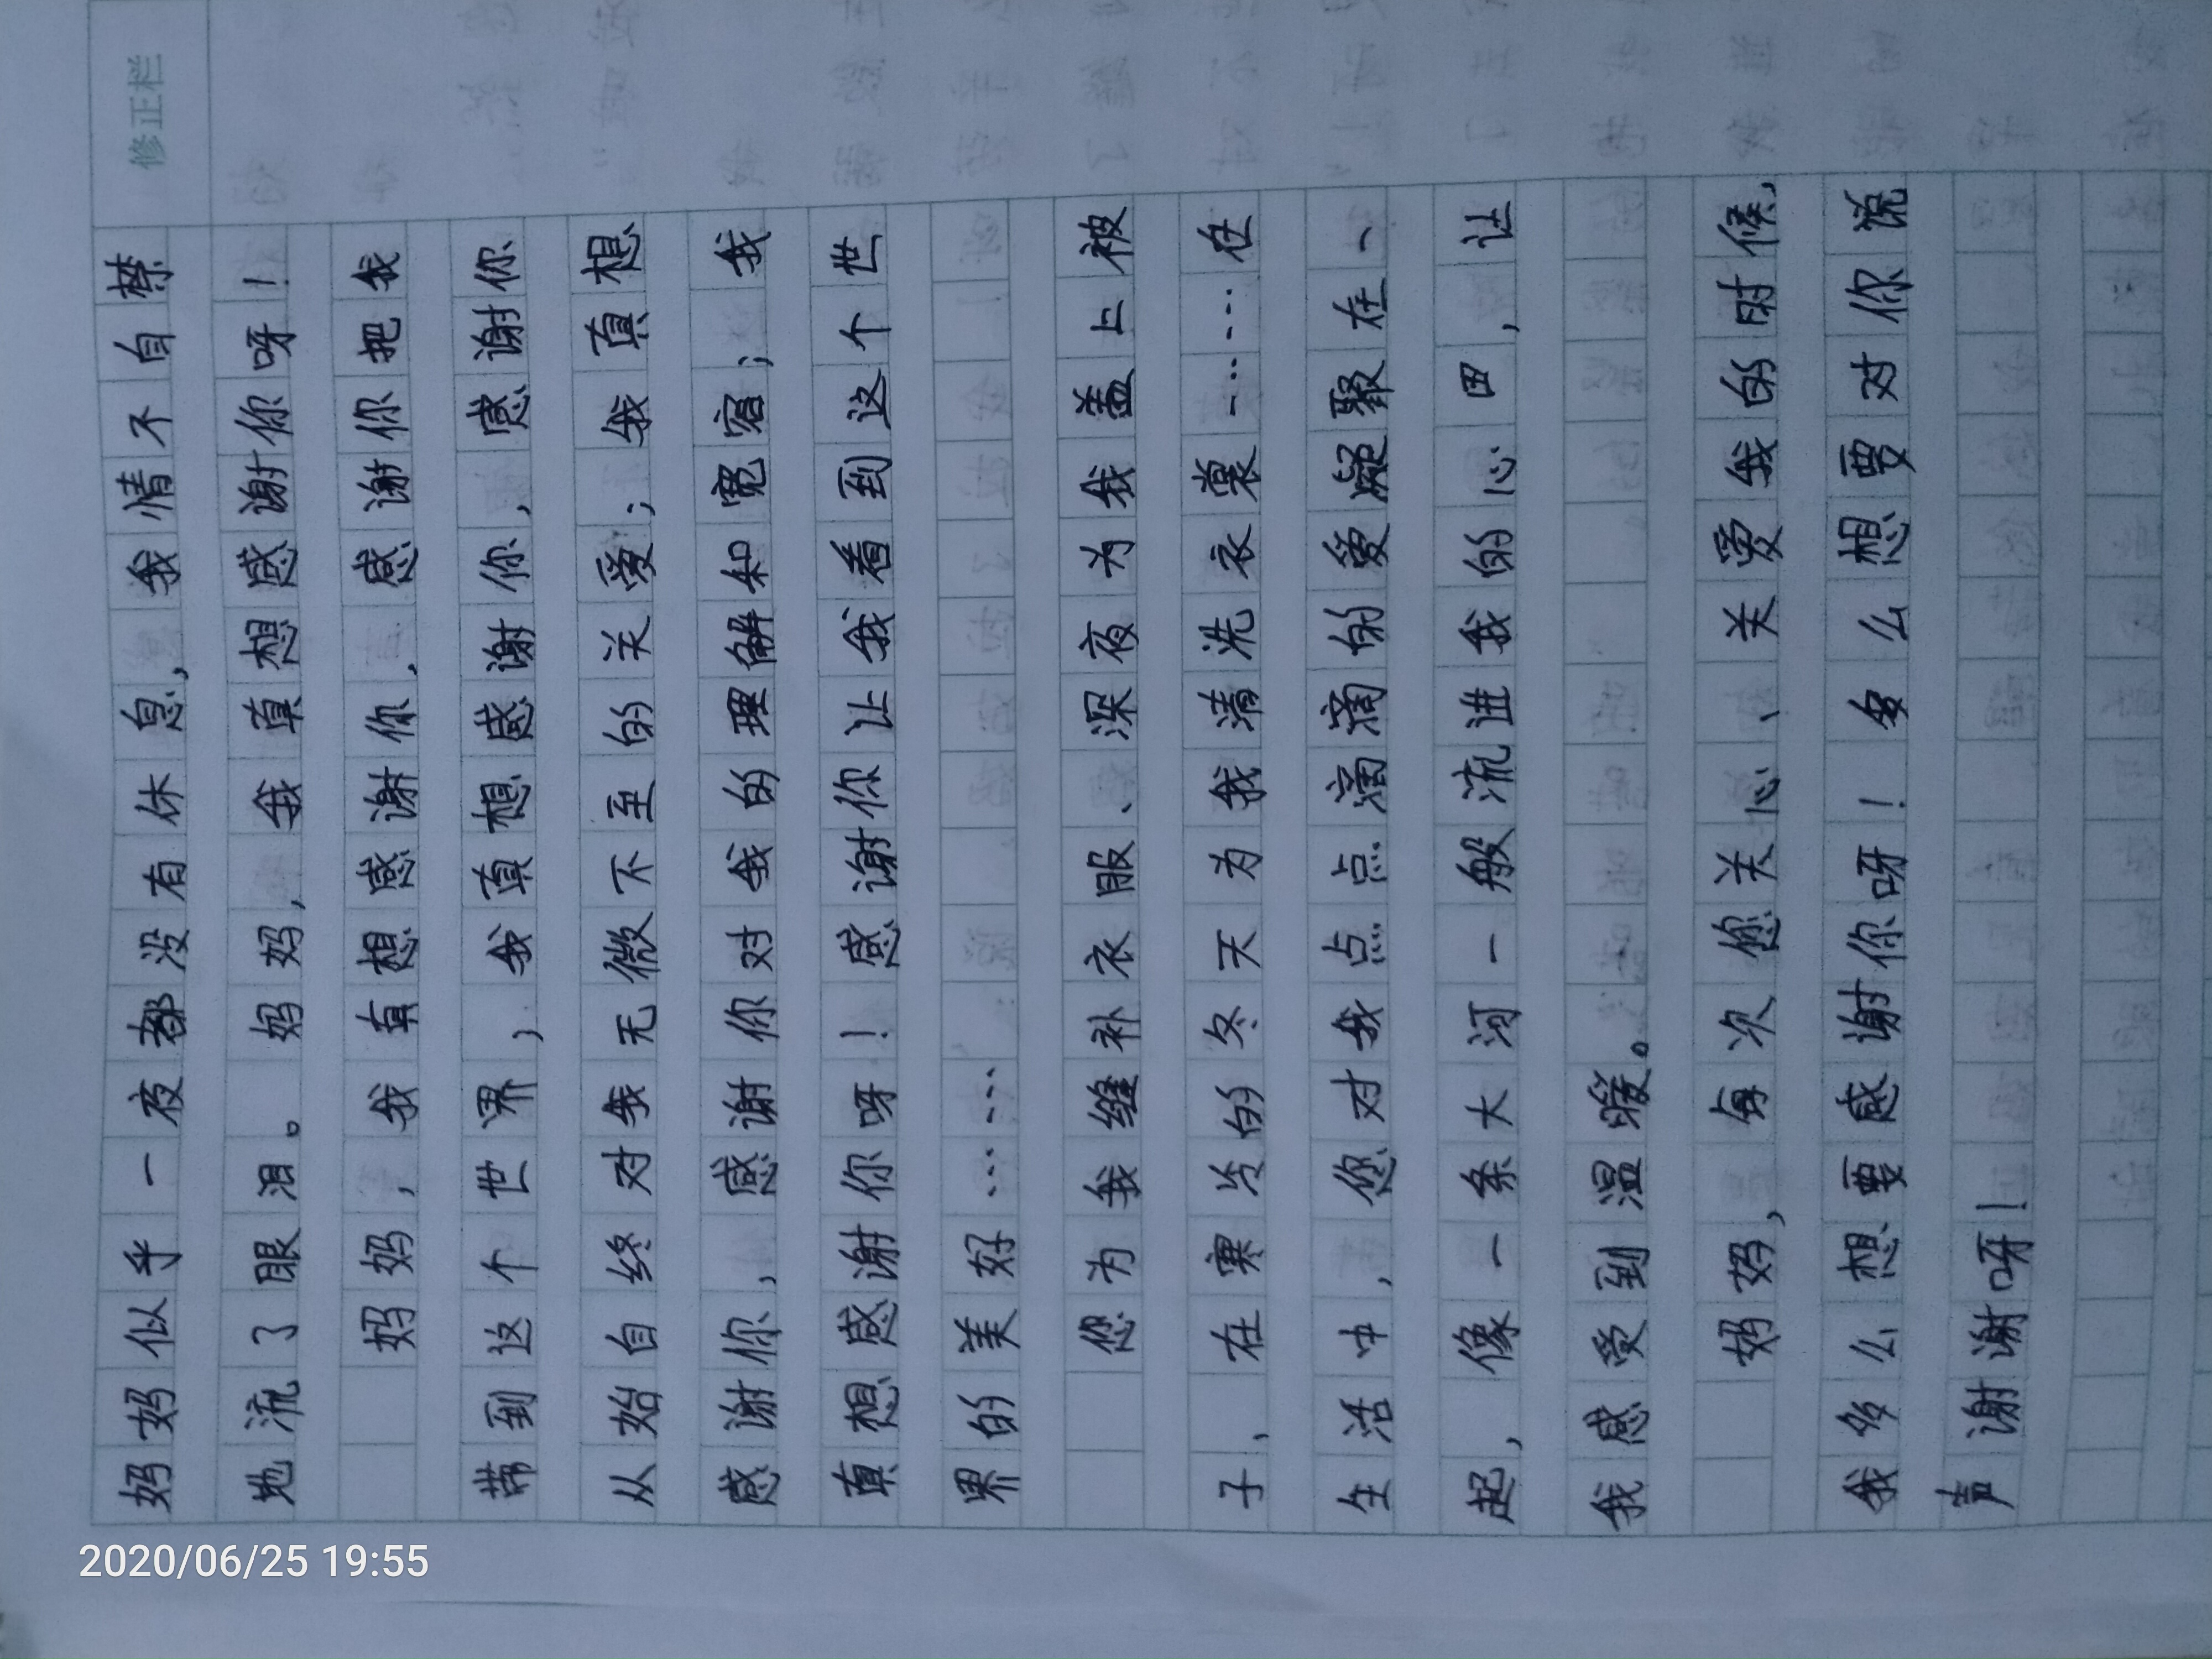 修正栏
妈妈似乎一夜都没有休息，我情不自禁
地流了眼泪。妈妈，我真想感谢你呀！
妈妈，我真想感谢你，感谢你把我
带到这个世界，我真想感谢你，感谢你
从始自终对我无微不至的关爱；我真想
感谢你，感谢你对我的理解和宽容；我
真想感谢你呀！感谢你让我看到这个世
界的美好……
您为我缝补衣服、深夜为我盖上被
子，在寒冷的冬天为我清洗衣裳……在
生活中，您对我点点滴滴的爱凝聚在一
起，像一条大河一般流进我的心田，让
我感受到温暖。
妈妈，每次您关心、关爱我的时候，
我多么想要感谢你呀！多么想要对你说
声谢谢呀！
2020/06/25 19:55